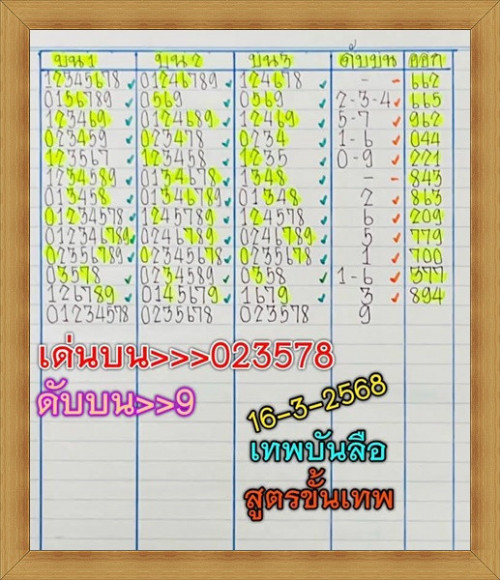 บน 1 บน 2 บน 3 ดับบน ออก
12345678 01246789 124678 - 662
0156789 0569 0569 2-3-4 665
123469 0124689 12469 5-7 962
023459 023478 0234 1-6 044
123567 123458 1235 0-9 221
1234589 0134678 1348 - 843
013458 01346789 01348 2 863
01234578 1245789 124578 6 209
012346789 0246789 0246789 5 779
02356789 02345678 0235678 1 700
03578 0234589 0358 1-6 377
126789 0145679 1679 3 894
01234578 0235678 023578 9
เด่นบน>>>023578
ดับบน>>9
16-3-2568
เทพบันลือ
สูตรขั้นเทพ